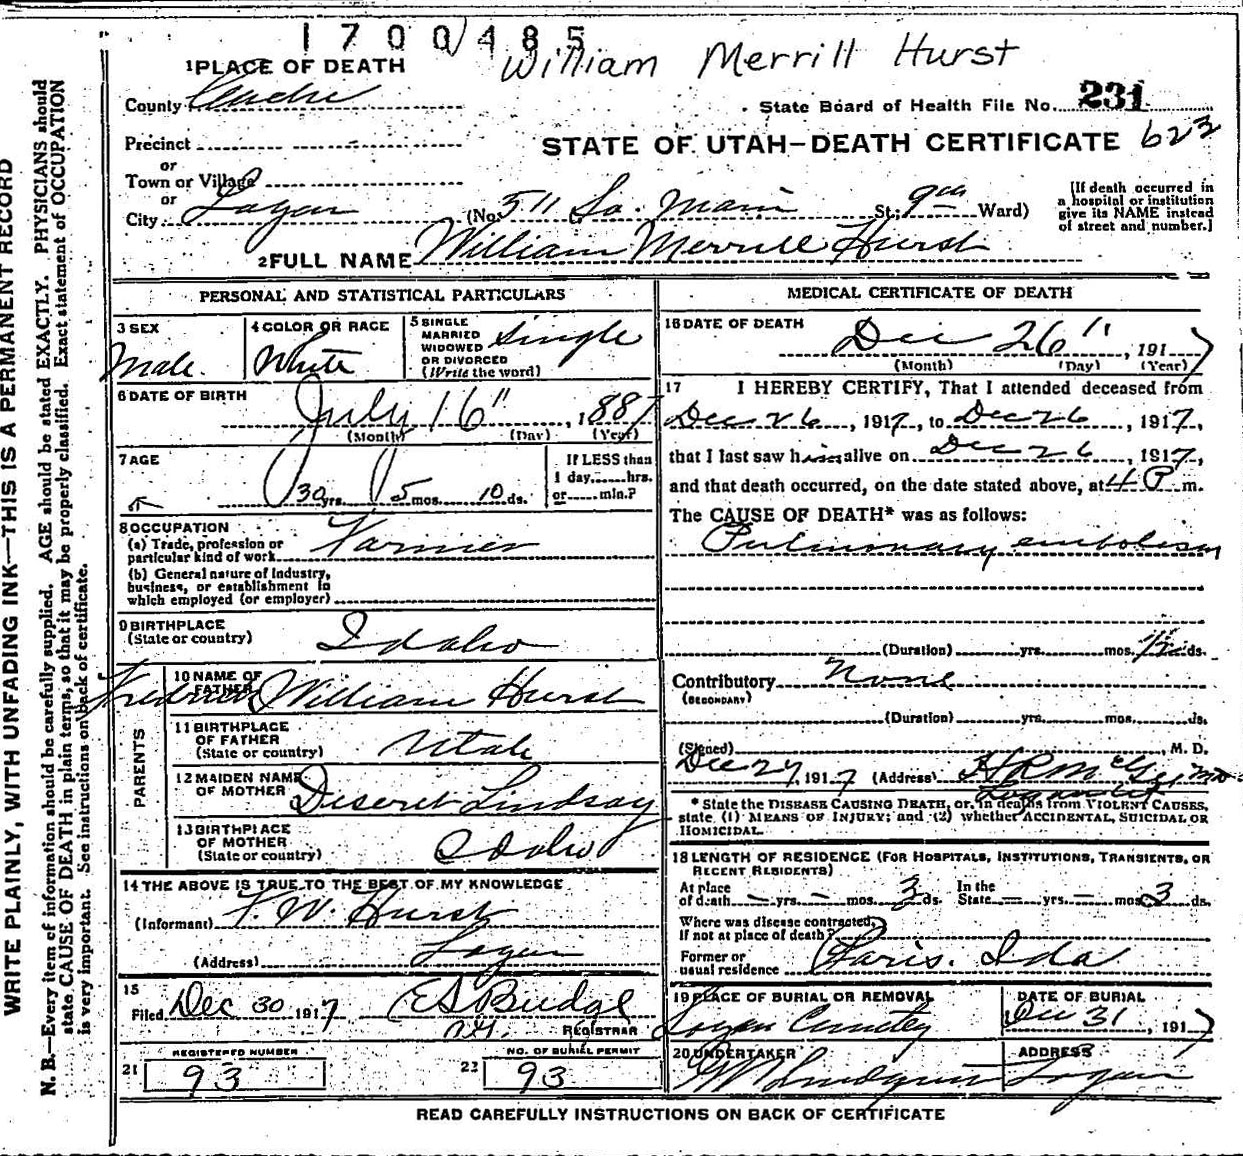 1700485
William Merrill Hurst
1 PLACE OF DEATH
County Cache
State Board of Health File No. 231
Precinct
STATE OF UTAH—DEATH CERTIFICATE 623
or
Town or Village
or
City Logan (No. 511 So. Main St. 9th Ward)
[If death occurred in
a hospital or institution
give its NAME instead
of street and number.]
2 FULL NAME William Merrill Hurst
PERSONAL AND STATISTICAL PARTICULARS
3 SEX
Male.
4 COLOR OR RACE
White
5 SINGLE
MARRIED
WIDOWED
OR DIVORCED
(Write the word)
Single
6 DATE OF BIRTH
July 16", 1887
(Month) (Day) (Year)
7 AGE
30 yrs. 5 mos. 10 ds.
If LESS than
1 day......hrs.
or......min.?
8 OCCUPATION
(a) Trade, profession or
particular kind of work Farmer
(b) General nature of industry,
business, or establishment in
which employed (or employer)
9 BIRTHPLACE
(State or country) Idaho
PARENTS
10 NAME OF
FATHER
Fredrick William Hurst
11 BIRTHPLACE
OF FATHER
(State or country) Utah
12 MAIDEN NAME
OF MOTHER Deseret Lindsay
13 BIRTHPLACE
OF MOTHER
(State or country) Idaho
14 THE ABOVE IS TRUE TO THE BEST OF MY KNOWLEDGE
(Informant) F. W. Hurst
(Address) Logan
15
Filed Dec 30 1917 E S Budge
REGISTRAR
REGISTERED NUMBER
21 93
NO. OF BURIAL PERMIT
22 93
MEDICAL CERTIFICATE OF DEATH
16 DATE OF DEATH
Dec 26", 1917
(Month) (Day) (Year)
17 I HEREBY CERTIFY, That I attended deceased from
Dec 26, 1917, to Dec 26, 1917,
that I last saw him alive on Dec 26, 1917,
and that death occurred, on the date stated above, at 4 P m.
The CAUSE OF DEATH* was as follows:
Pulmonary embolism
(Duration) yrs. mos. ds.
Contributory None
(SECONDARY)
(Duration) yrs. mos. ds.
(Signed) M. D.
Dec 27, 1917 (Address)
Logan Ut
* State the DISEASE CAUSING DEATH, or, in deaths from VIOLENT CAUSES,
state (1) MEANS OF INJURY; and (2) whether ACCIDENTAL, SUICIDAL OR
HOMICIDAL.
18 LENGTH OF RESIDENCE (FOR HOSPITALS, INSTITUTIONS, TRANSIENTS, OR
RECENT RESIDENTS)
At place
of death — yrs. — mos. 3 ds.
In the
State — yrs. — mos. 3 ds.
Where was disease contracted,
If not at place of death?
Former or
usual residence Paris. Ida
19 PLACE OF BURIAL OR REMOVAL
Logan Cemetery
DATE OF BURIAL
Dec 31, 1917
20 UNDERTAKER
ADDRESS
Logan
READ CAREFULLY INSTRUCTIONS ON BACK OF CERTIFICATE
WRITE PLAINLY, WITH UNFADING INK—THIS IS A PERMANENT RECORD
N. B.—Every item of information should be carefully supplied. AGE should be stated EXACTLY. PHYSICIANS should
state CAUSE OF DEATH in plain terms, so that it may be properly classified. Exact statement of OCCUPATION
is very important. See instructions on back of certificate.